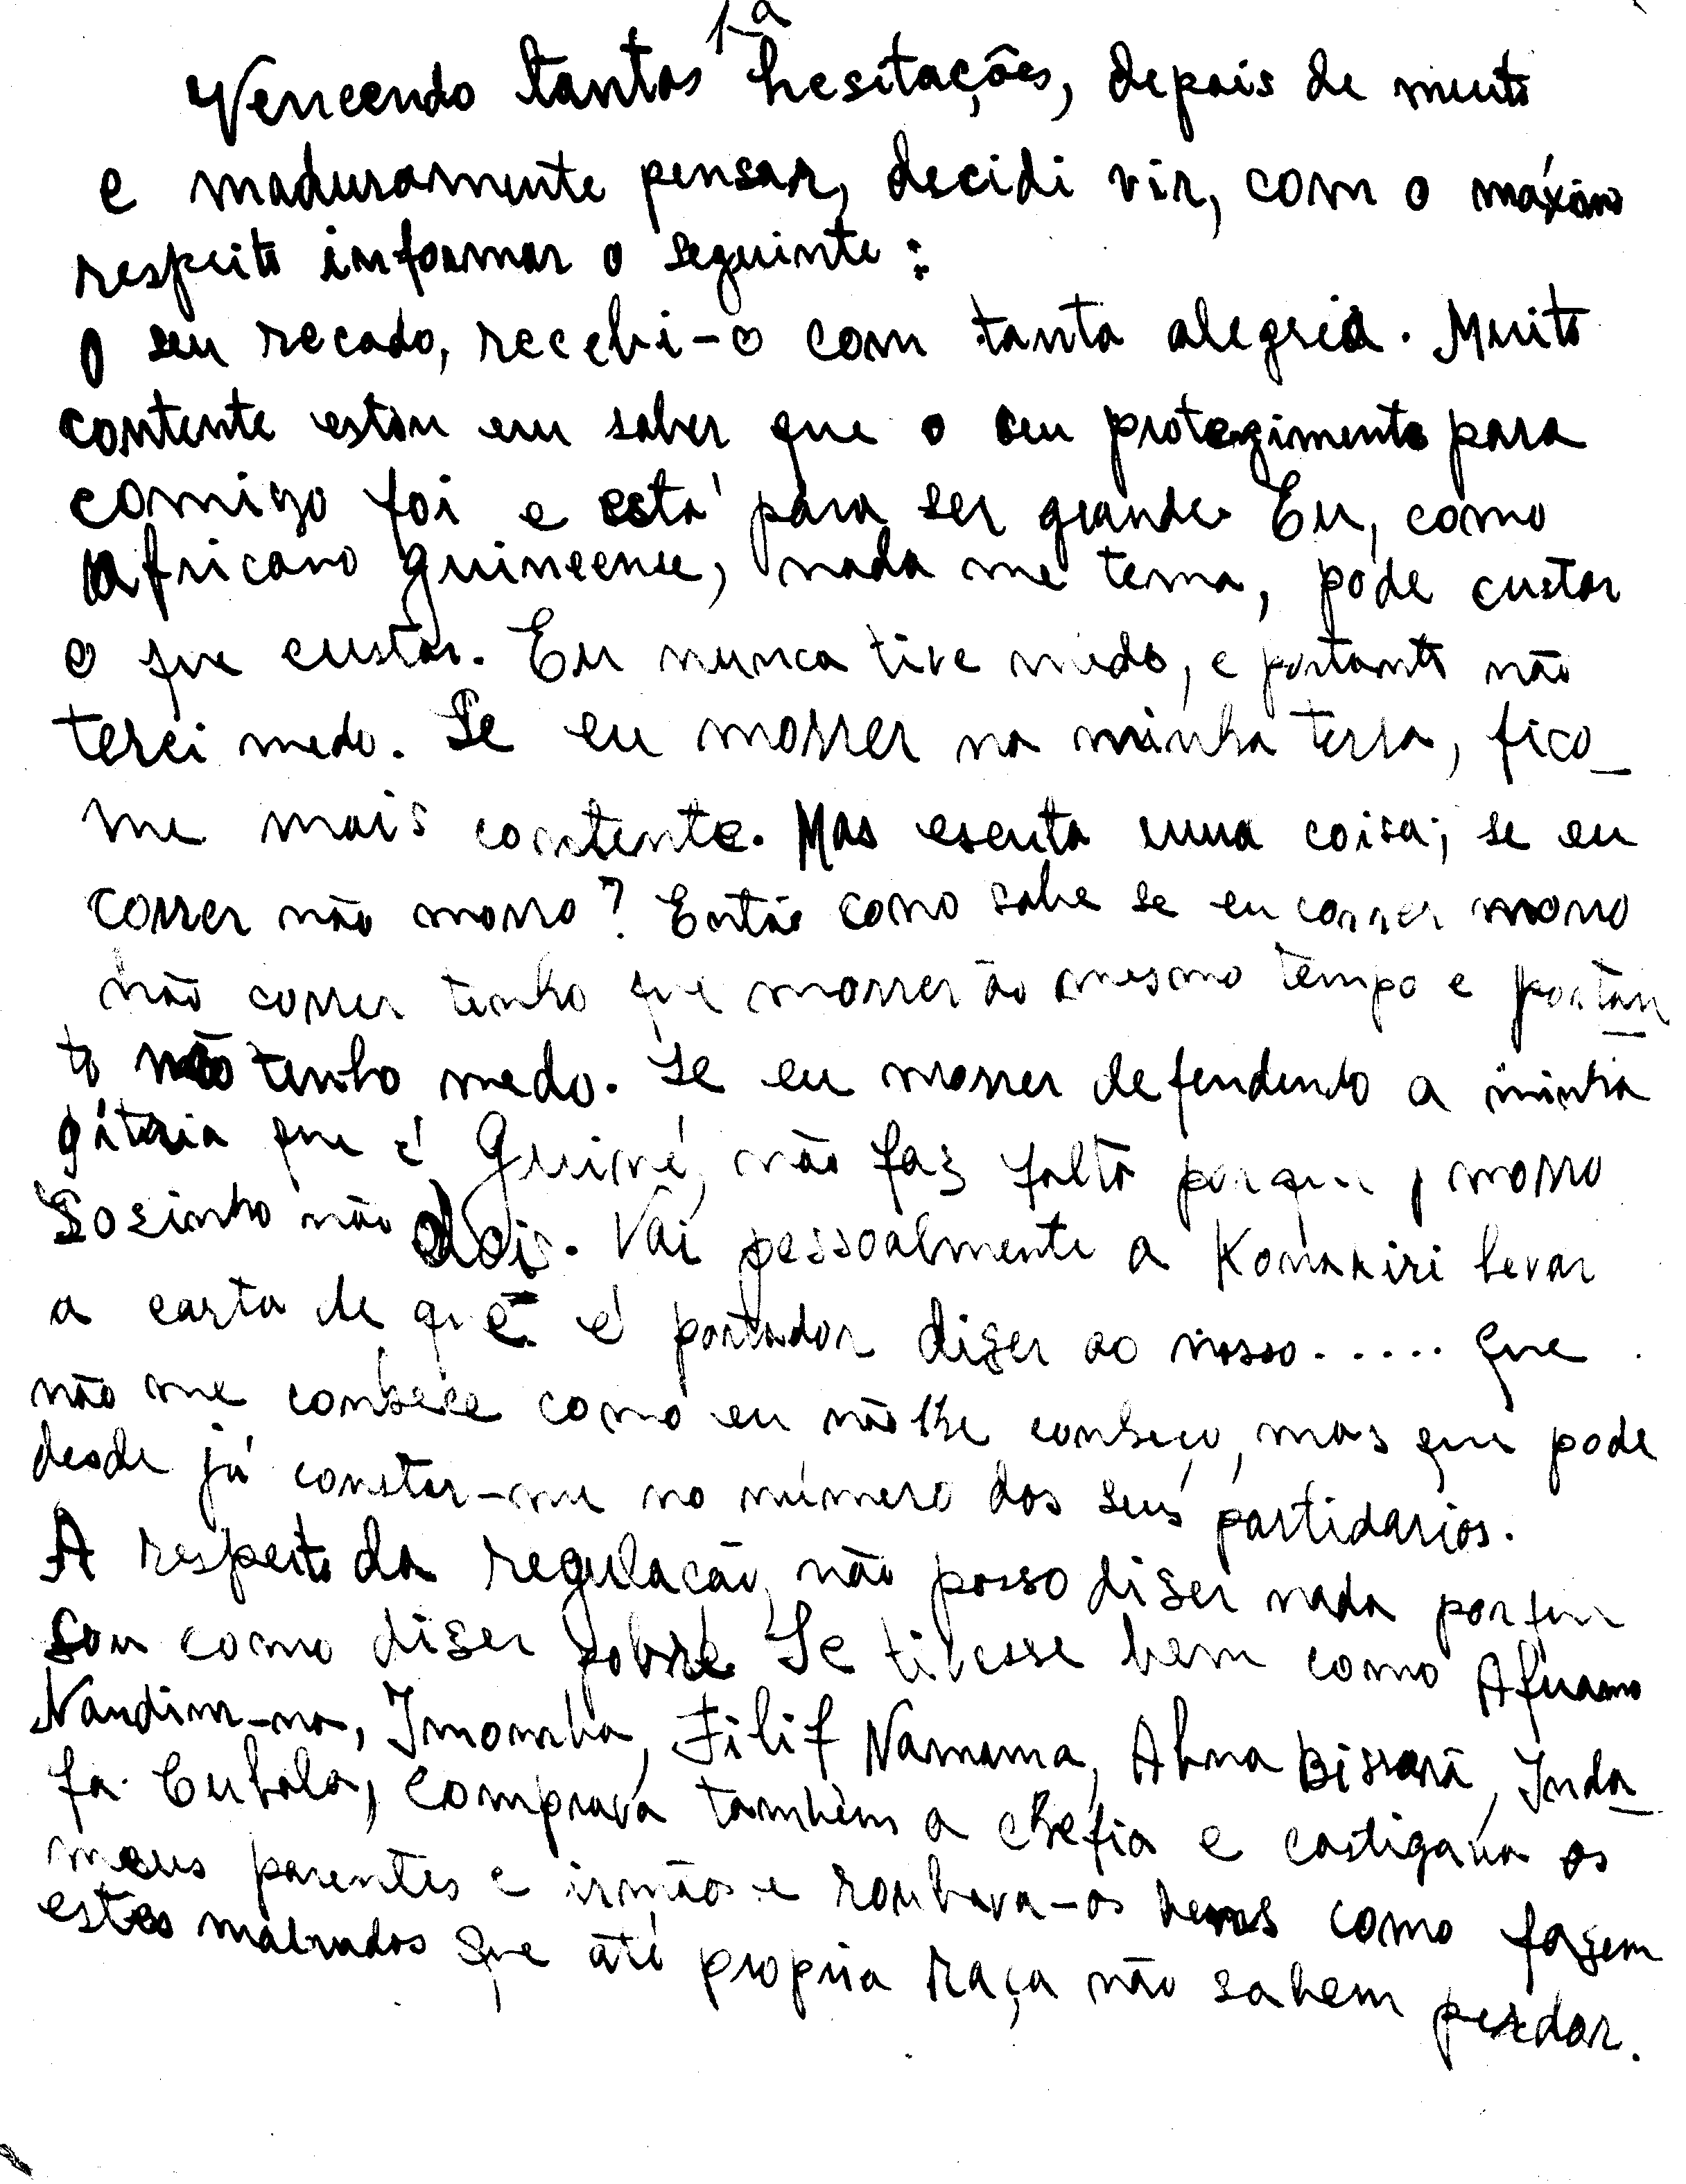 1-a
Vencendo tantas hesitações, depois de muito
e maduramente pensar, decidi vir, com o máximo
respeito informar o seguinte:
O seu recado, recebi-o com tanta alegria. Muito
contente estou em saber que o seu protegimento para
comigo foi e está para ser grande. Eu, como
africano guineense, nada me tema, pode custar
o que custar. Eu nunca tive medo, e portanto não
terei medo. Se eu morrer na minha terra, fico_
me mais contente. Mas escuta uma coisa; se eu
correr não morro? Então como sabe se eu correr morro
não correr tenho que morrer ao mesmo tempo e portan
to não tenho medo. Se eu morrer defendendo a minha
pátria que é Guiné, não faz falta porque, morro
Sozinho não dois. Vai pessoalmente a Konakiri levar
a carta de que é portador diser ao nosso..... que
não me conhece como eu não lhe conheço, mas que pode
desde já constar-me no número dos seus partidarios.
A respeito da regulacão, não posso diser nada porque
sou como diser pobre. Se tivesse bem como Afuamo
Nandim-na, Imomba, Filif Namama, Abna Bissorã, Inda_
fa Cubala, comprava também a chefia e castigava os
meus parentes e irmãos e roubava-os bens como fazem
estes malvados que até propria raça não sabem perdar.